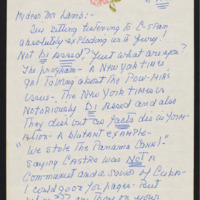 My dear Mr. Lamb:-
I'm sitting listening to C-Span
absolutely exploding as I jump!
Not Bi ASed? Just what are you?
The program - A New York Times
gal talking about the POW-MIA's
issues. The New York Times is
Notoriously Bi ASed and also
They dish out dis facts dis in form-
Ation - A blatant example-
"We stole the Panama Canal!"
saying Castro was NOT a
Communist and a savior of Cuba-
I could go on for pages. But